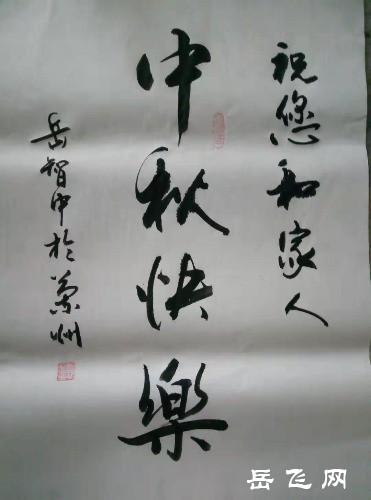 祝您和家人
中秋快樂
岳智中於蘭州
岳飞网